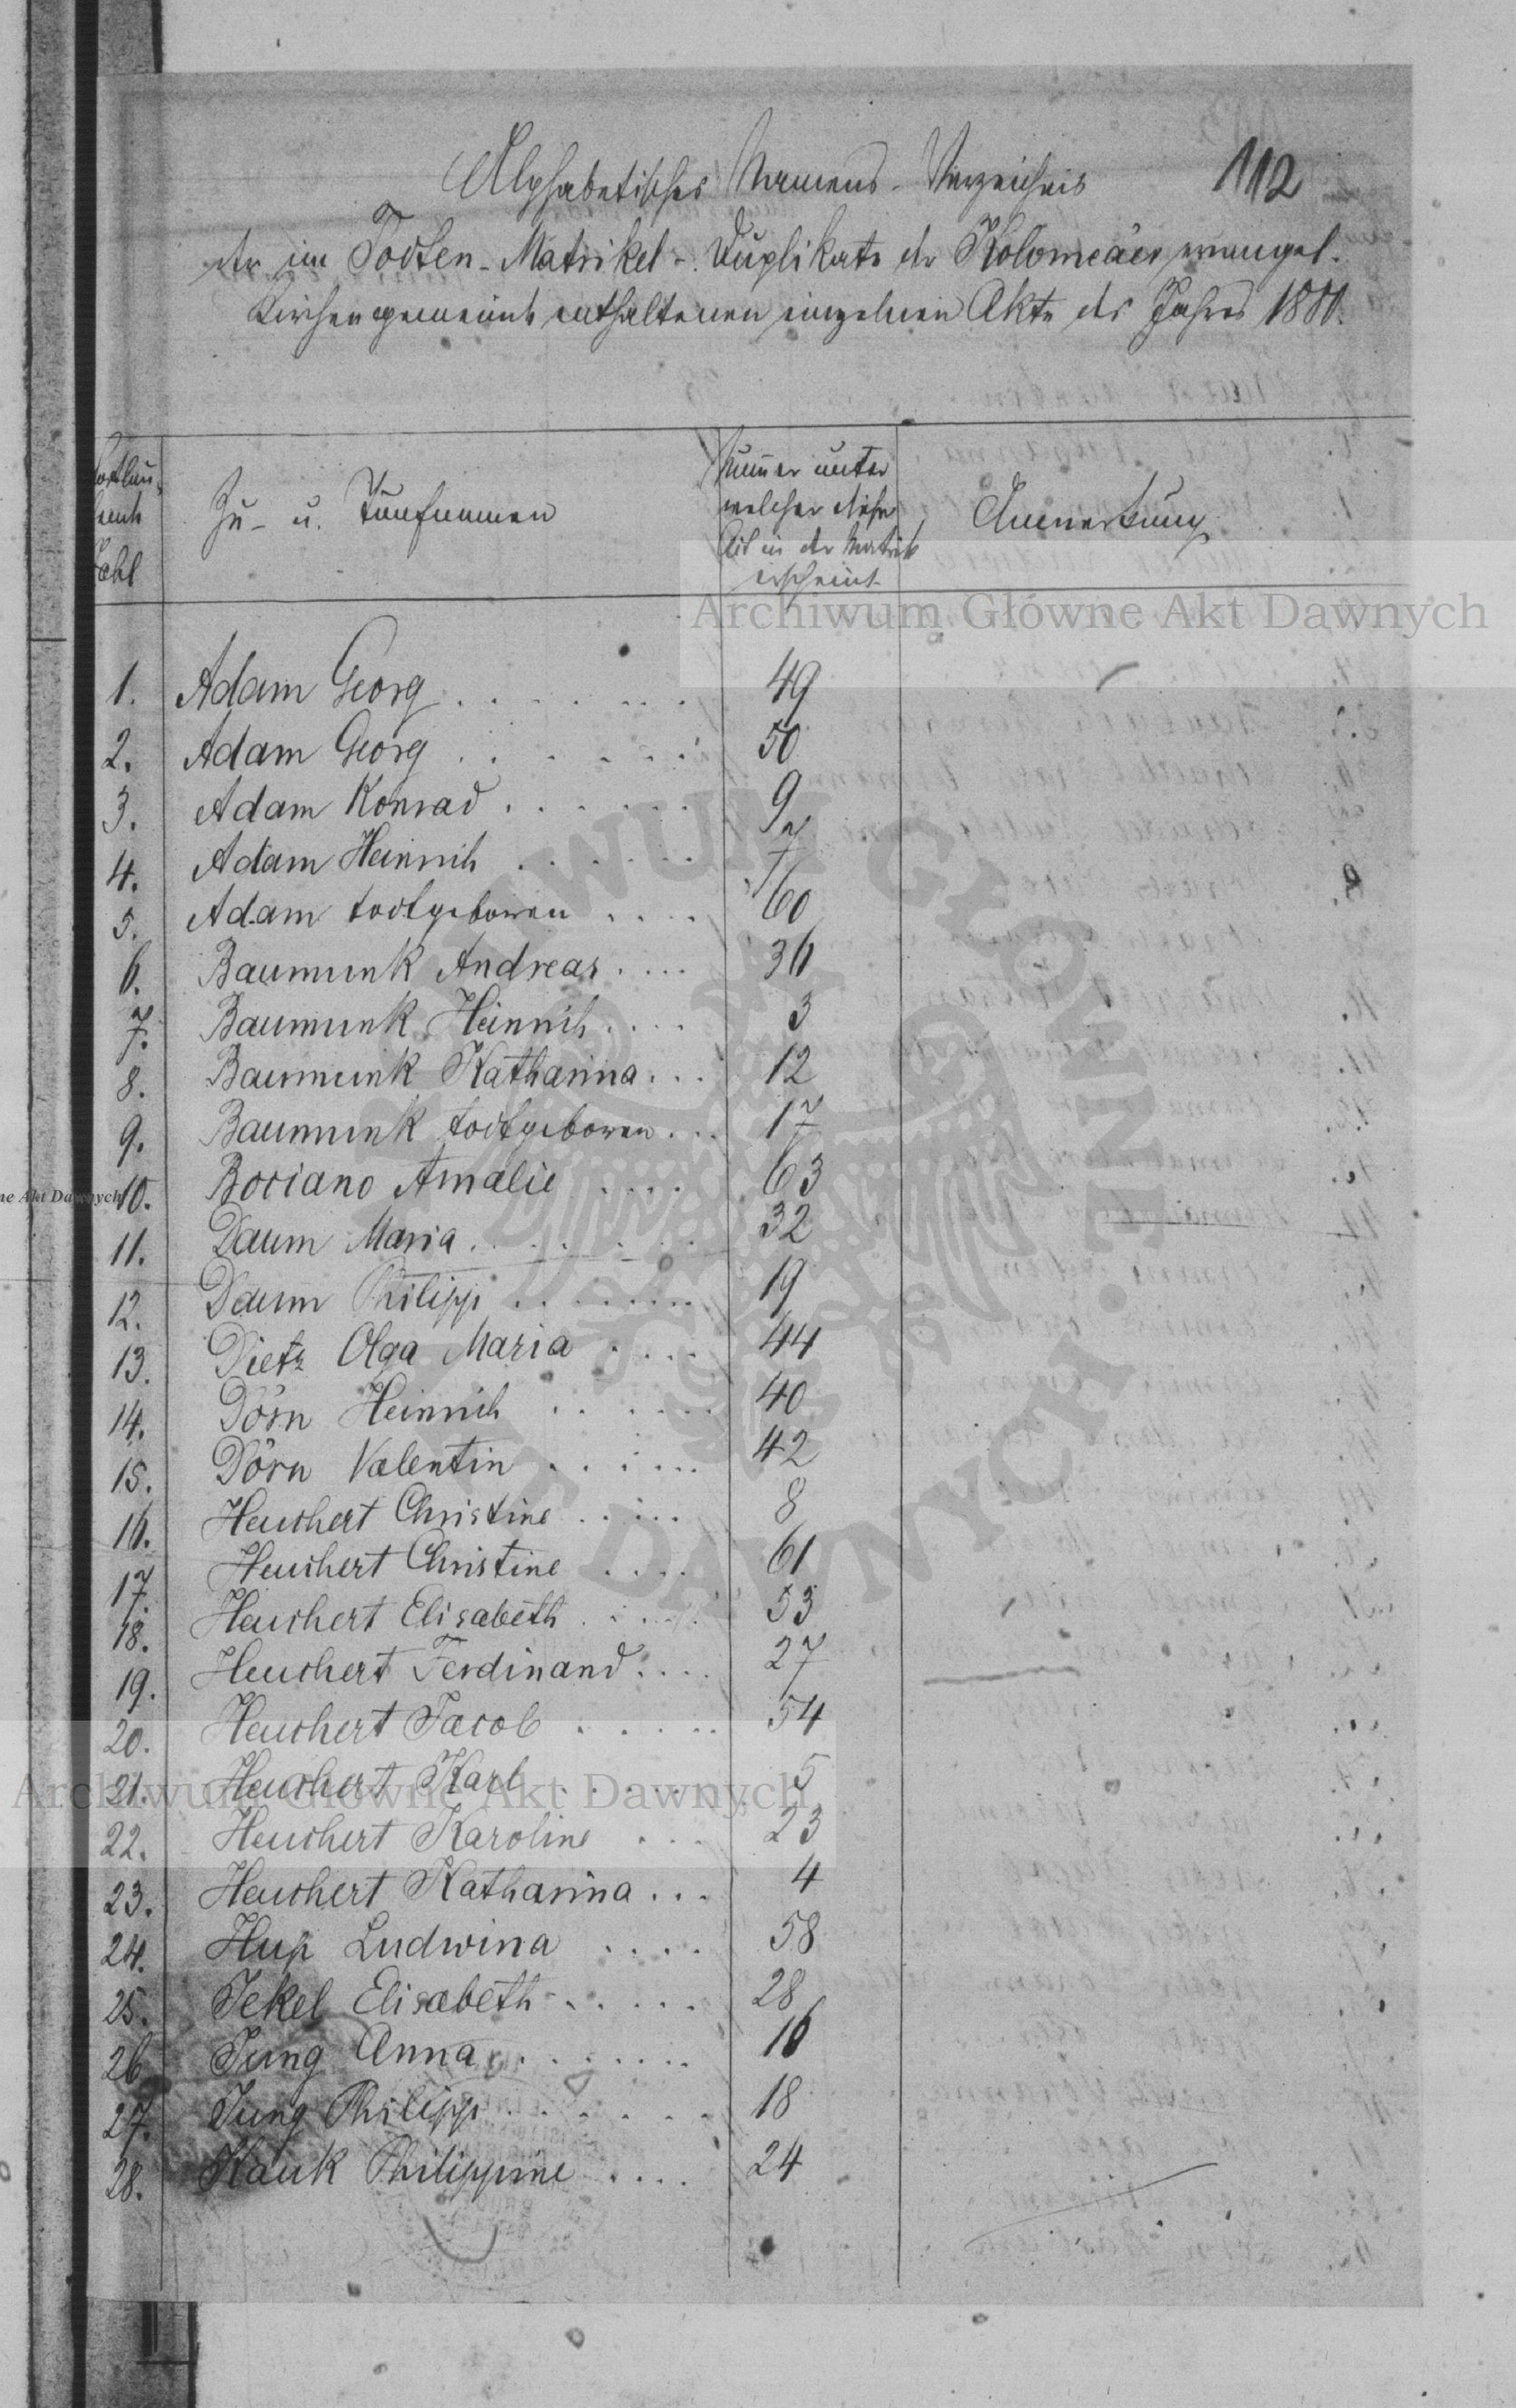 112
Alphabetisches Namens-Verzeichnis
der im Todten-Matrikel-Duplikate der Kolomeaer evangel.
Kirchengemeinde enthaltenen einzelnen Akte des Jahres 1880.
Fortlau-
fende
Zahl
Zu- u. Taufnamen
Nummer unter
welcher dieser
Akt in der Matrik
erscheint
Anmerkung
Archiwum Główne Akt Dawnych
1. Adam Georg . . . . . . . 49
2. Adam Georg . . . . . . 50
3. Adam Konrad . . . . . . 9
4. Adam Heinrich . . . . . . 7
5. Adam todtgeboren . . . . 60
6. Baumunk Andreas . . . . 36
7. Baumunk Heinrich . . . . 3
8. Baumunk Katharina . . . 12
9. Baumunk todtgeboren . . . 17
10. Bociano Amalie . . . . 63
11. Daum Maria . . . . . . . 32
12. Daum Philipp . . . . . . . . 19
13. Dietz Olga Maria . . . . 44
14. Dörn Heinrich . . . . . . 40
15. Dörn Valentin . . . . . . 42
16. Heuchert Christine . . . . . 8
17. Heuchert Christine . . . . 61
18. Heuchert Elisabeth . . . . . 53
19. Heuchert Ferdinand . . . . 27
20. Heuchert Jacob . . . . . . 54
21. Heuchert Karl . . . . . 5
22. Heuchert Karoline . . . 23
23. Heuchert Katharina . . . 4
24. Hup Ludwina . . . . 58
25. Jekel Elisabeth . . . . . 28
26. Jung Anna . . . . . . . 16
27. Jung Philipp . . . . . . . 18
28. Kauk Philippine . . . . 24
Archiwum Główne Akt Dawnych
ARCHIWUM GŁÓWNE AKT DAWNYCH